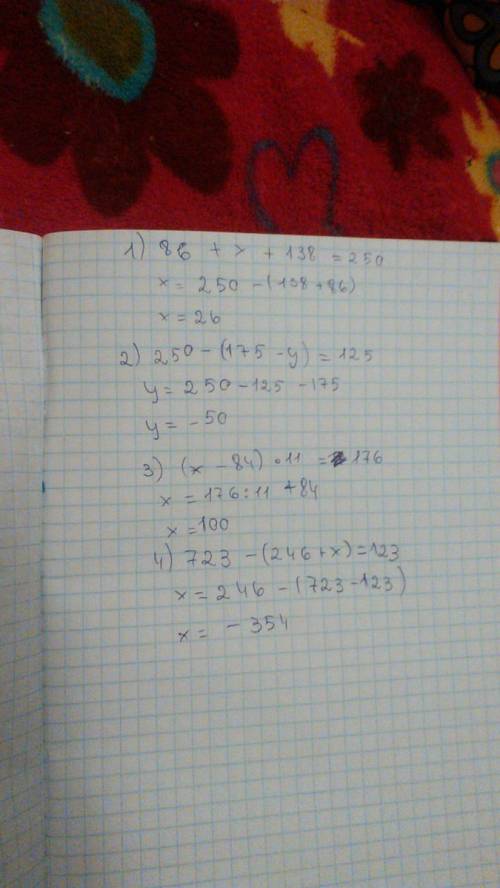 1) 86 + x + 138 = 250
x = 250 - (138 + 86)
x = 26
2) 250 - (175 - y) = 125
y = 250 - 125 - 175
y = - 50
3) (x - 84) · 11 = 176
x = 176 : 11 + 84
x = 100
4) 723 - (246 + x) = 123
x = 246 - (723 - 123)
x = - 354